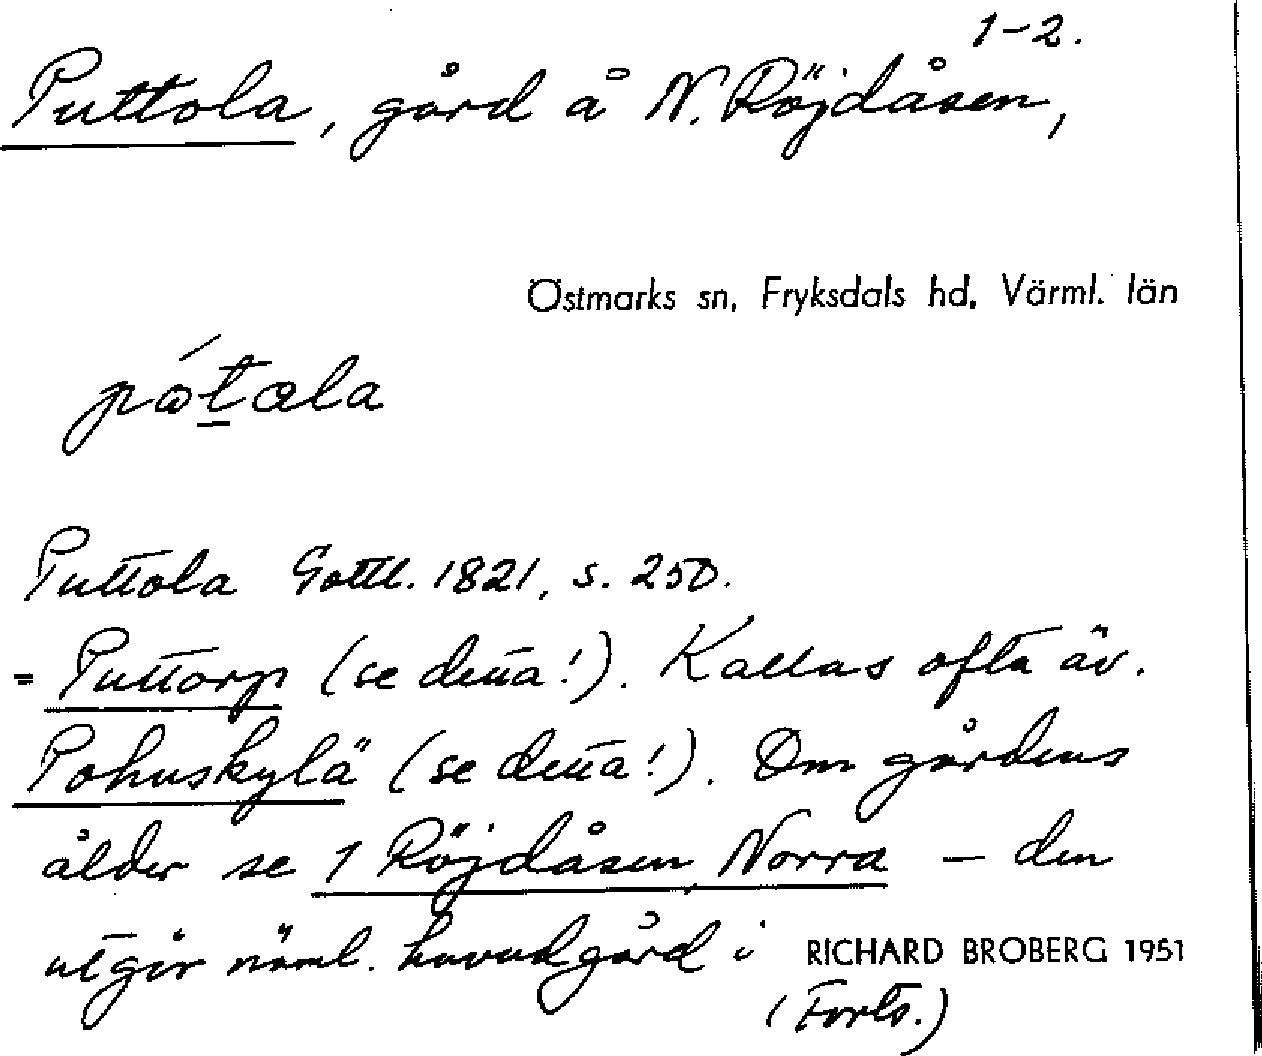 1-2.
Puttola, gård å N. Röjdåsen,
Östmarks sn, Fryksdals hd, Värml. län
Puttola Gottl. 1821, s. 250.
= Puttorp (se detta!). Kallas ofta äv.
Pohuskylä (se detta!). Om gårdens
ålder se 1 Röjdåsen, Norra — den
utgör näml. huvudgård i
RICHARD BROBERG 1951
(Forts.)